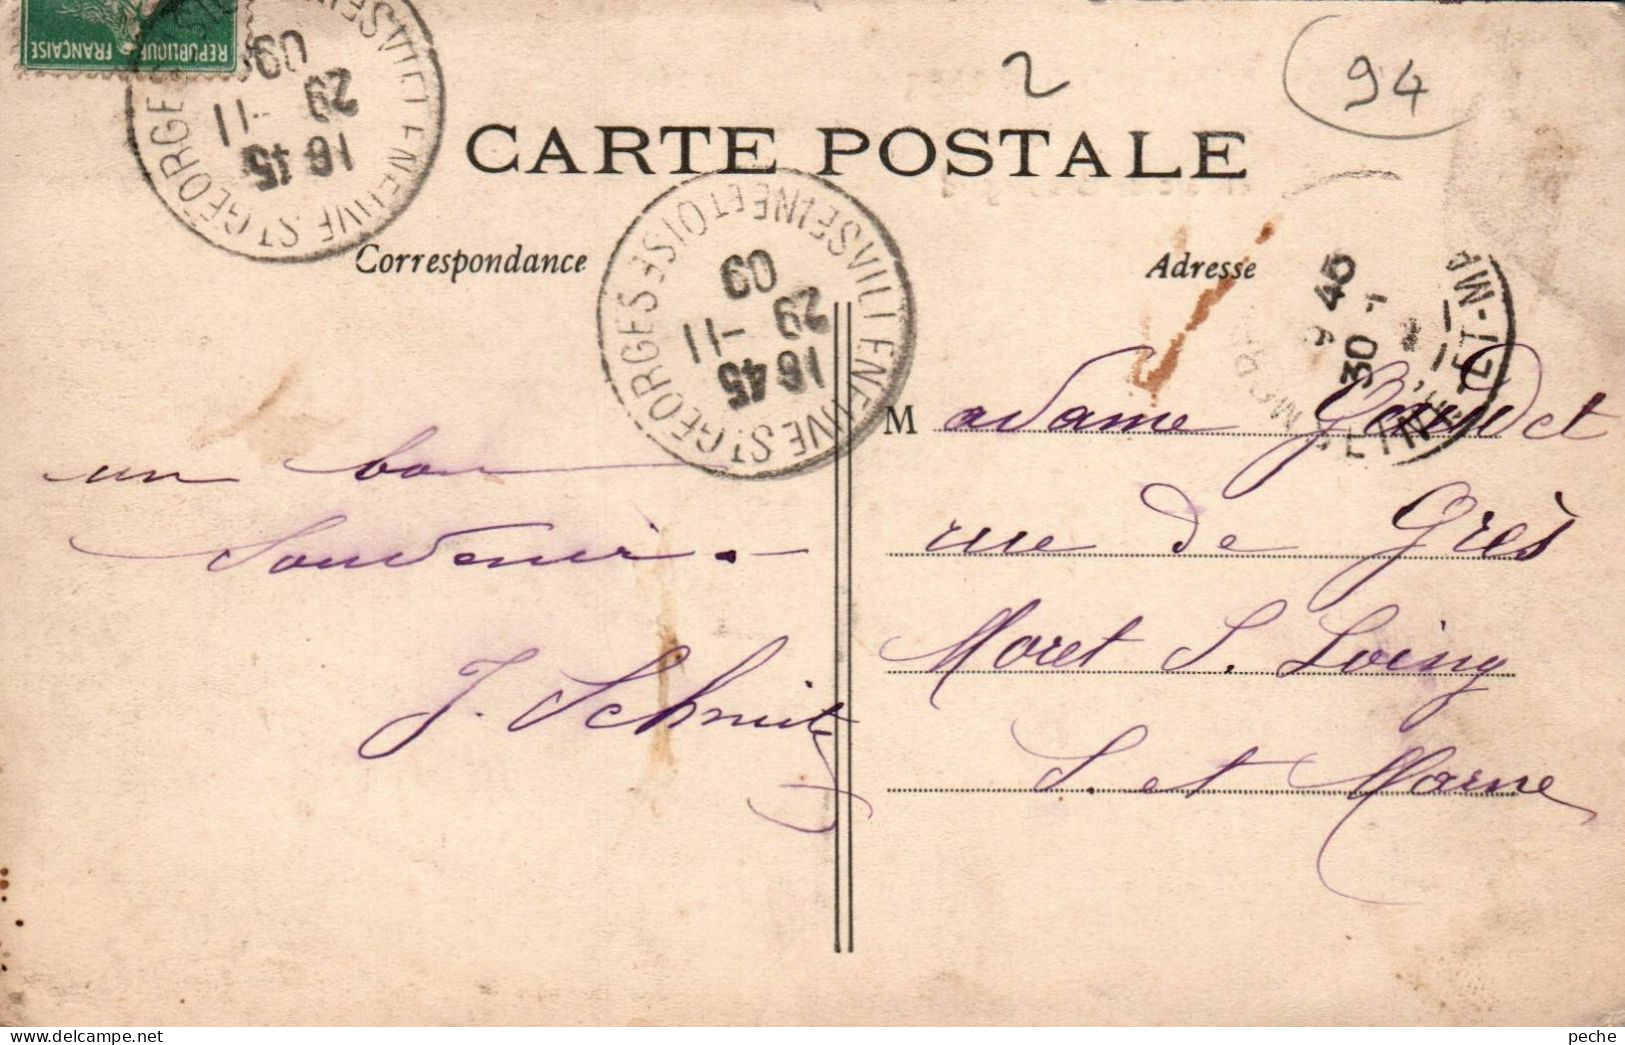 REPUBLIQUE FRANÇAISE
VILLENEUVE ST GEORGES SEINE ET OISE
16 45
29 -11
09
2
94
CARTE POSTALE
Correspondance
VILLENEUVE ST GEORGES SEINE ET OISE
16 45
29 -11
09
Adresse
9 45
30
ET-M
un bon
souvenir. -
J. Schmitz
Madame Gaudet
rue de Grès
Moret S. Loing
S. et Marne
peche